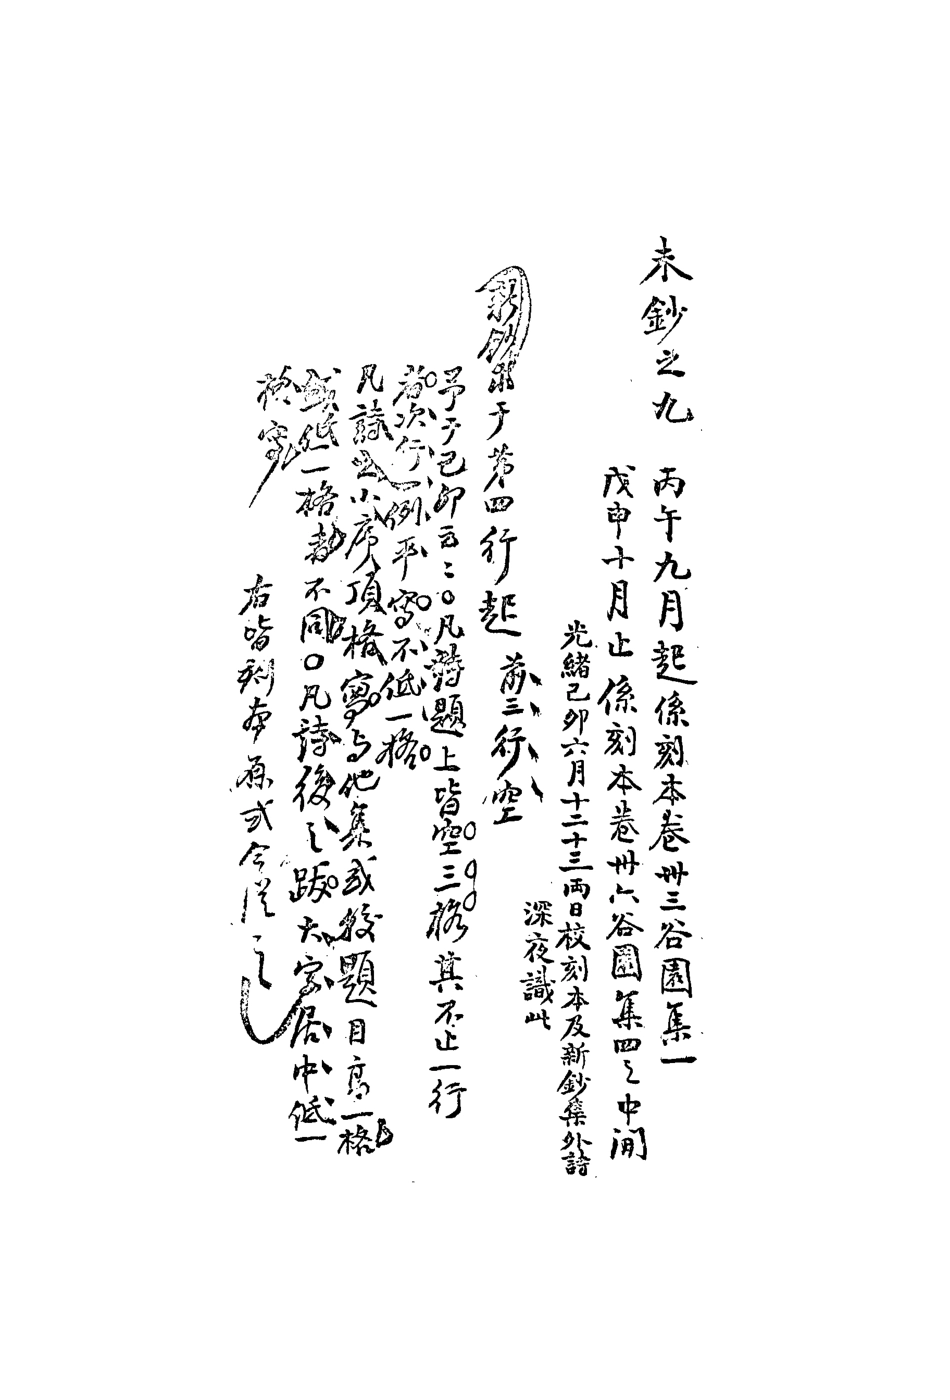 未鈔之九
丙午九月起係刻本卷卅三谷園集一
戊申十月止係刻本卷卅六谷園集四之中間
光緒己卯六月十二十三兩日校刻本及新鈔集外詩
深夜識此
新鈔 于第四行起 前三行空
予于己卯云〻○凡詩題上皆空三格其不止一行
者次行一例平寫不低一格
凡詩之小序頂格寫與他集或較題目高一格
或低一格者不同○凡詩後之跋大字居中低一
格寫
右皆刻本原式今從之